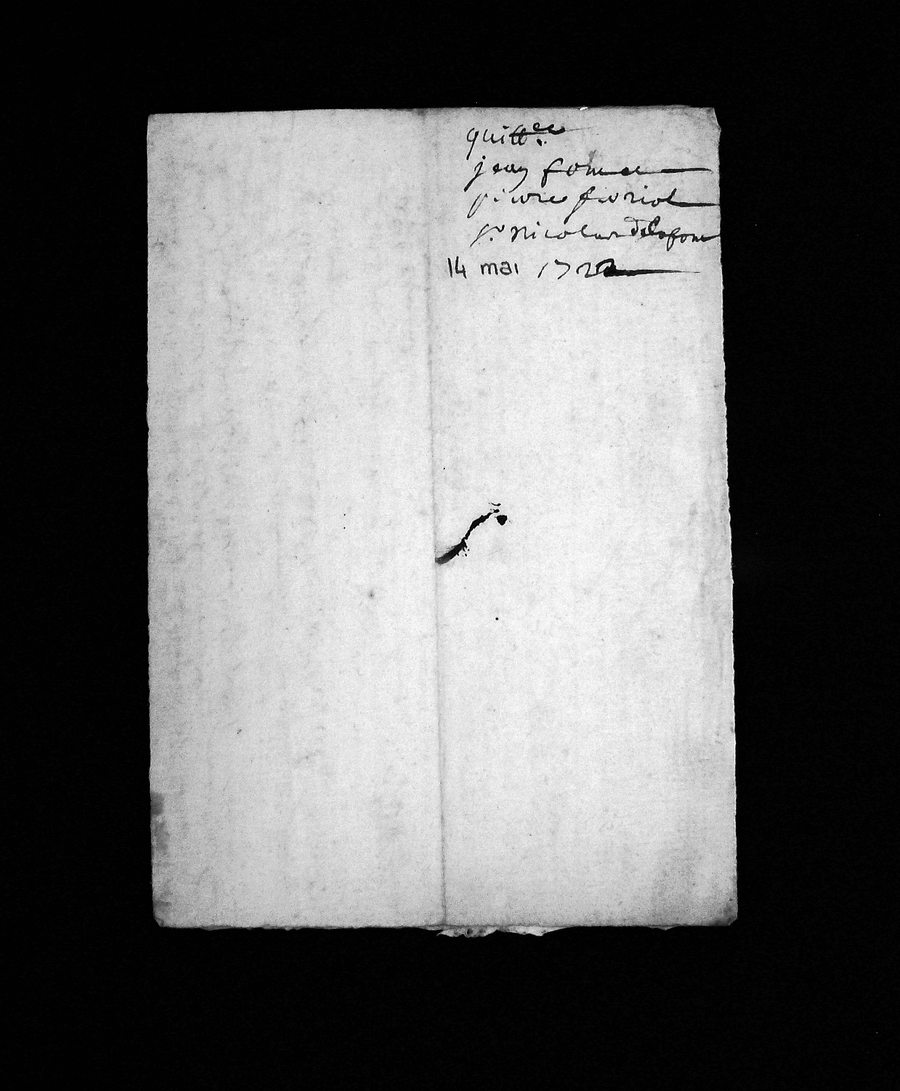 quittce
jean
pierre feriol
sr nicolas delafont
14 mai 1722